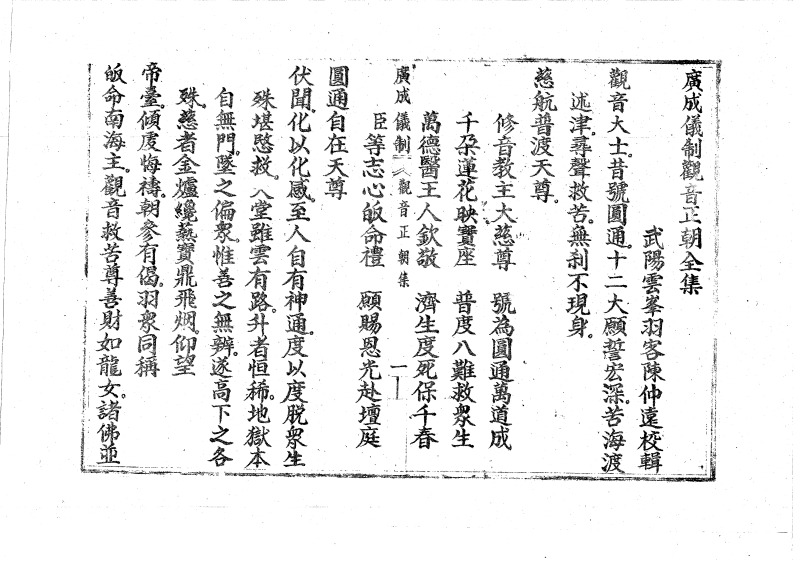 廣成儀制觀音正朝全集
武陽雲峯羽客陳仲遠校輯
觀音大士。昔號圓通。十二大願誓宏深。苦海渡
迷津。尋聲救苦。無刹不現身。
慈航普渡天尊。
修音教主大慈尊　號為圓通萬道成
千朶蓮花映寶座　普度八難救衆生
萬德醫王人欽敬　濟生度死保千春
臣等志心皈命禮　願賜恩光赴壇庭
廣成儀制　觀音正朝集　一
圓通自在天尊
伏聞。化以化感。至人自有神通。度以度脱。衆生
殊堪愍救。八堂雖雲有路。升者恒稀。地獄本
自無門。墜之偏衆。惟善之無辦。遂高下之各
殊。慈者金爐纔爇。寶鼎飛烟。仰望
帝臺。傾虔悔禱。朝參有偈。羽衆同稱
皈命南海主。觀音救苦尊。善財如龍女。諸佛並